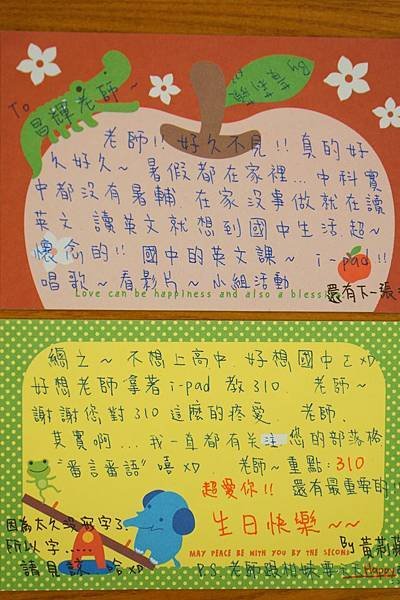 To 昌輝老師~
老師!! 好久不見!! 真的好
久好久~ 暑假都在家裡... 中科實
中都沒有暑輔 在家沒事做就在讀
英文 讀英文就想到國中生活 超~
懷念的!! 國中的英文課~ i-pad!!
唱歌~看影片~小組活動
Love can be happiness and also a blessing
還有下一張
總之~ 不想上高中 好想國中ㄛ XD
好想老師拿著 i-pad 教 310 老師~
謝謝您對 310 這麼的疼愛 老師.
其實啊... 我一直都有关注您的部落格
"番言番語" 嘻 XD 老師~重點: 310
超愛你!! 還有最重要的!!
生日快樂~~
因為太久沒寫字了
所以字......
請見諒 哈XD
By 黃
MAY PEACE BE WITH YOU BY THE SECOND
P.S. 老師跟柏妹要天天Happy